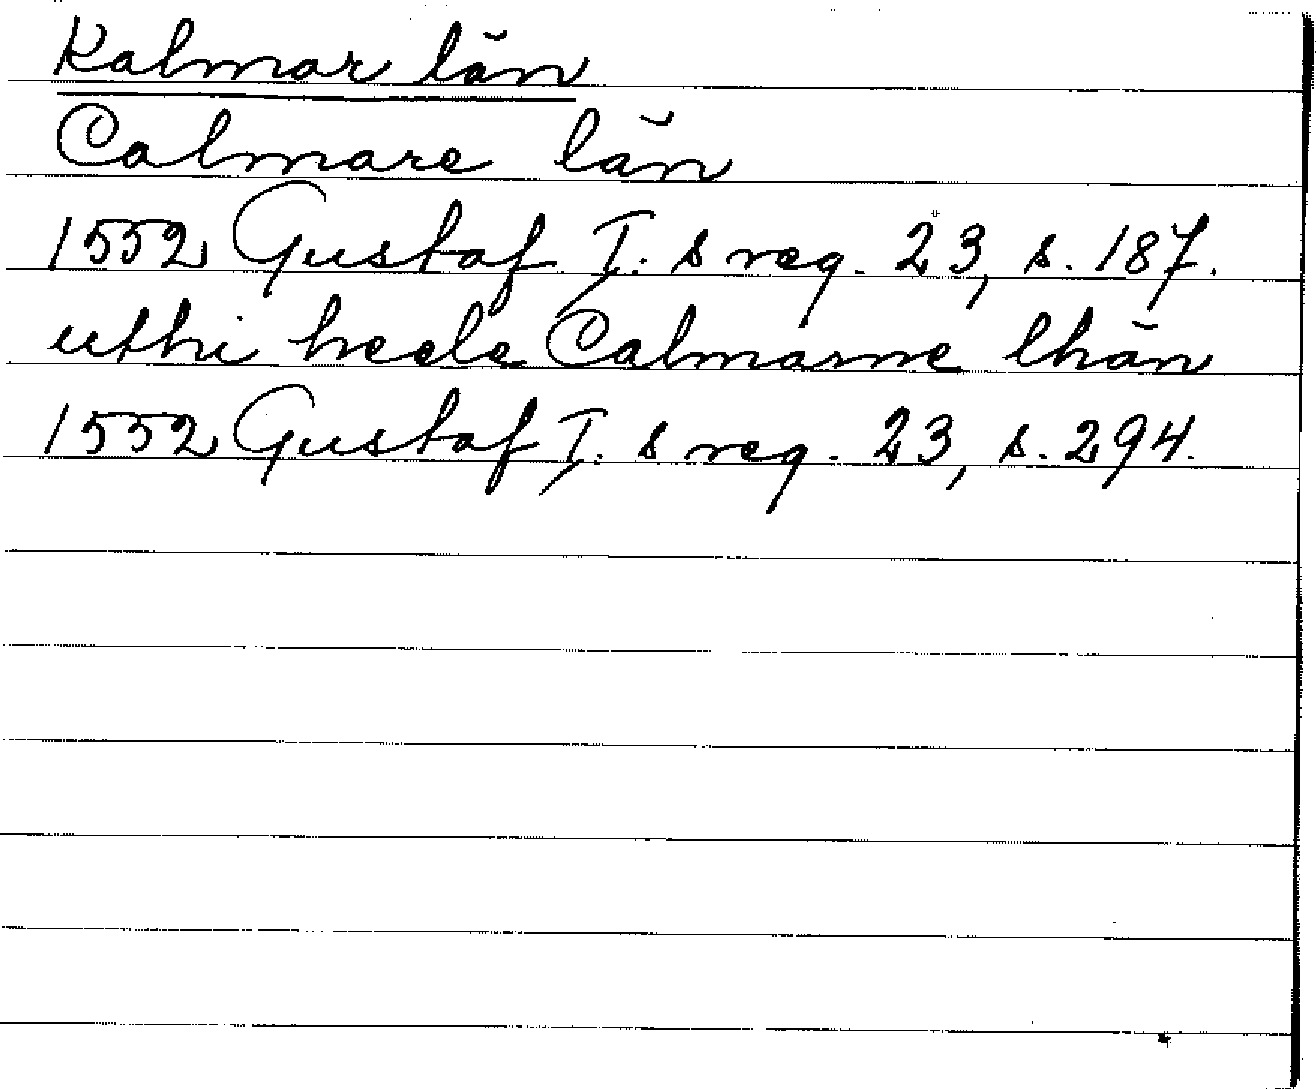 Kalmar län
Calmare län
1552 Gustaf I: s reg. 23, s. 187.
uthi heele Calmarne lhän
1552 Gustaf I: s reg. 23, s. 294.